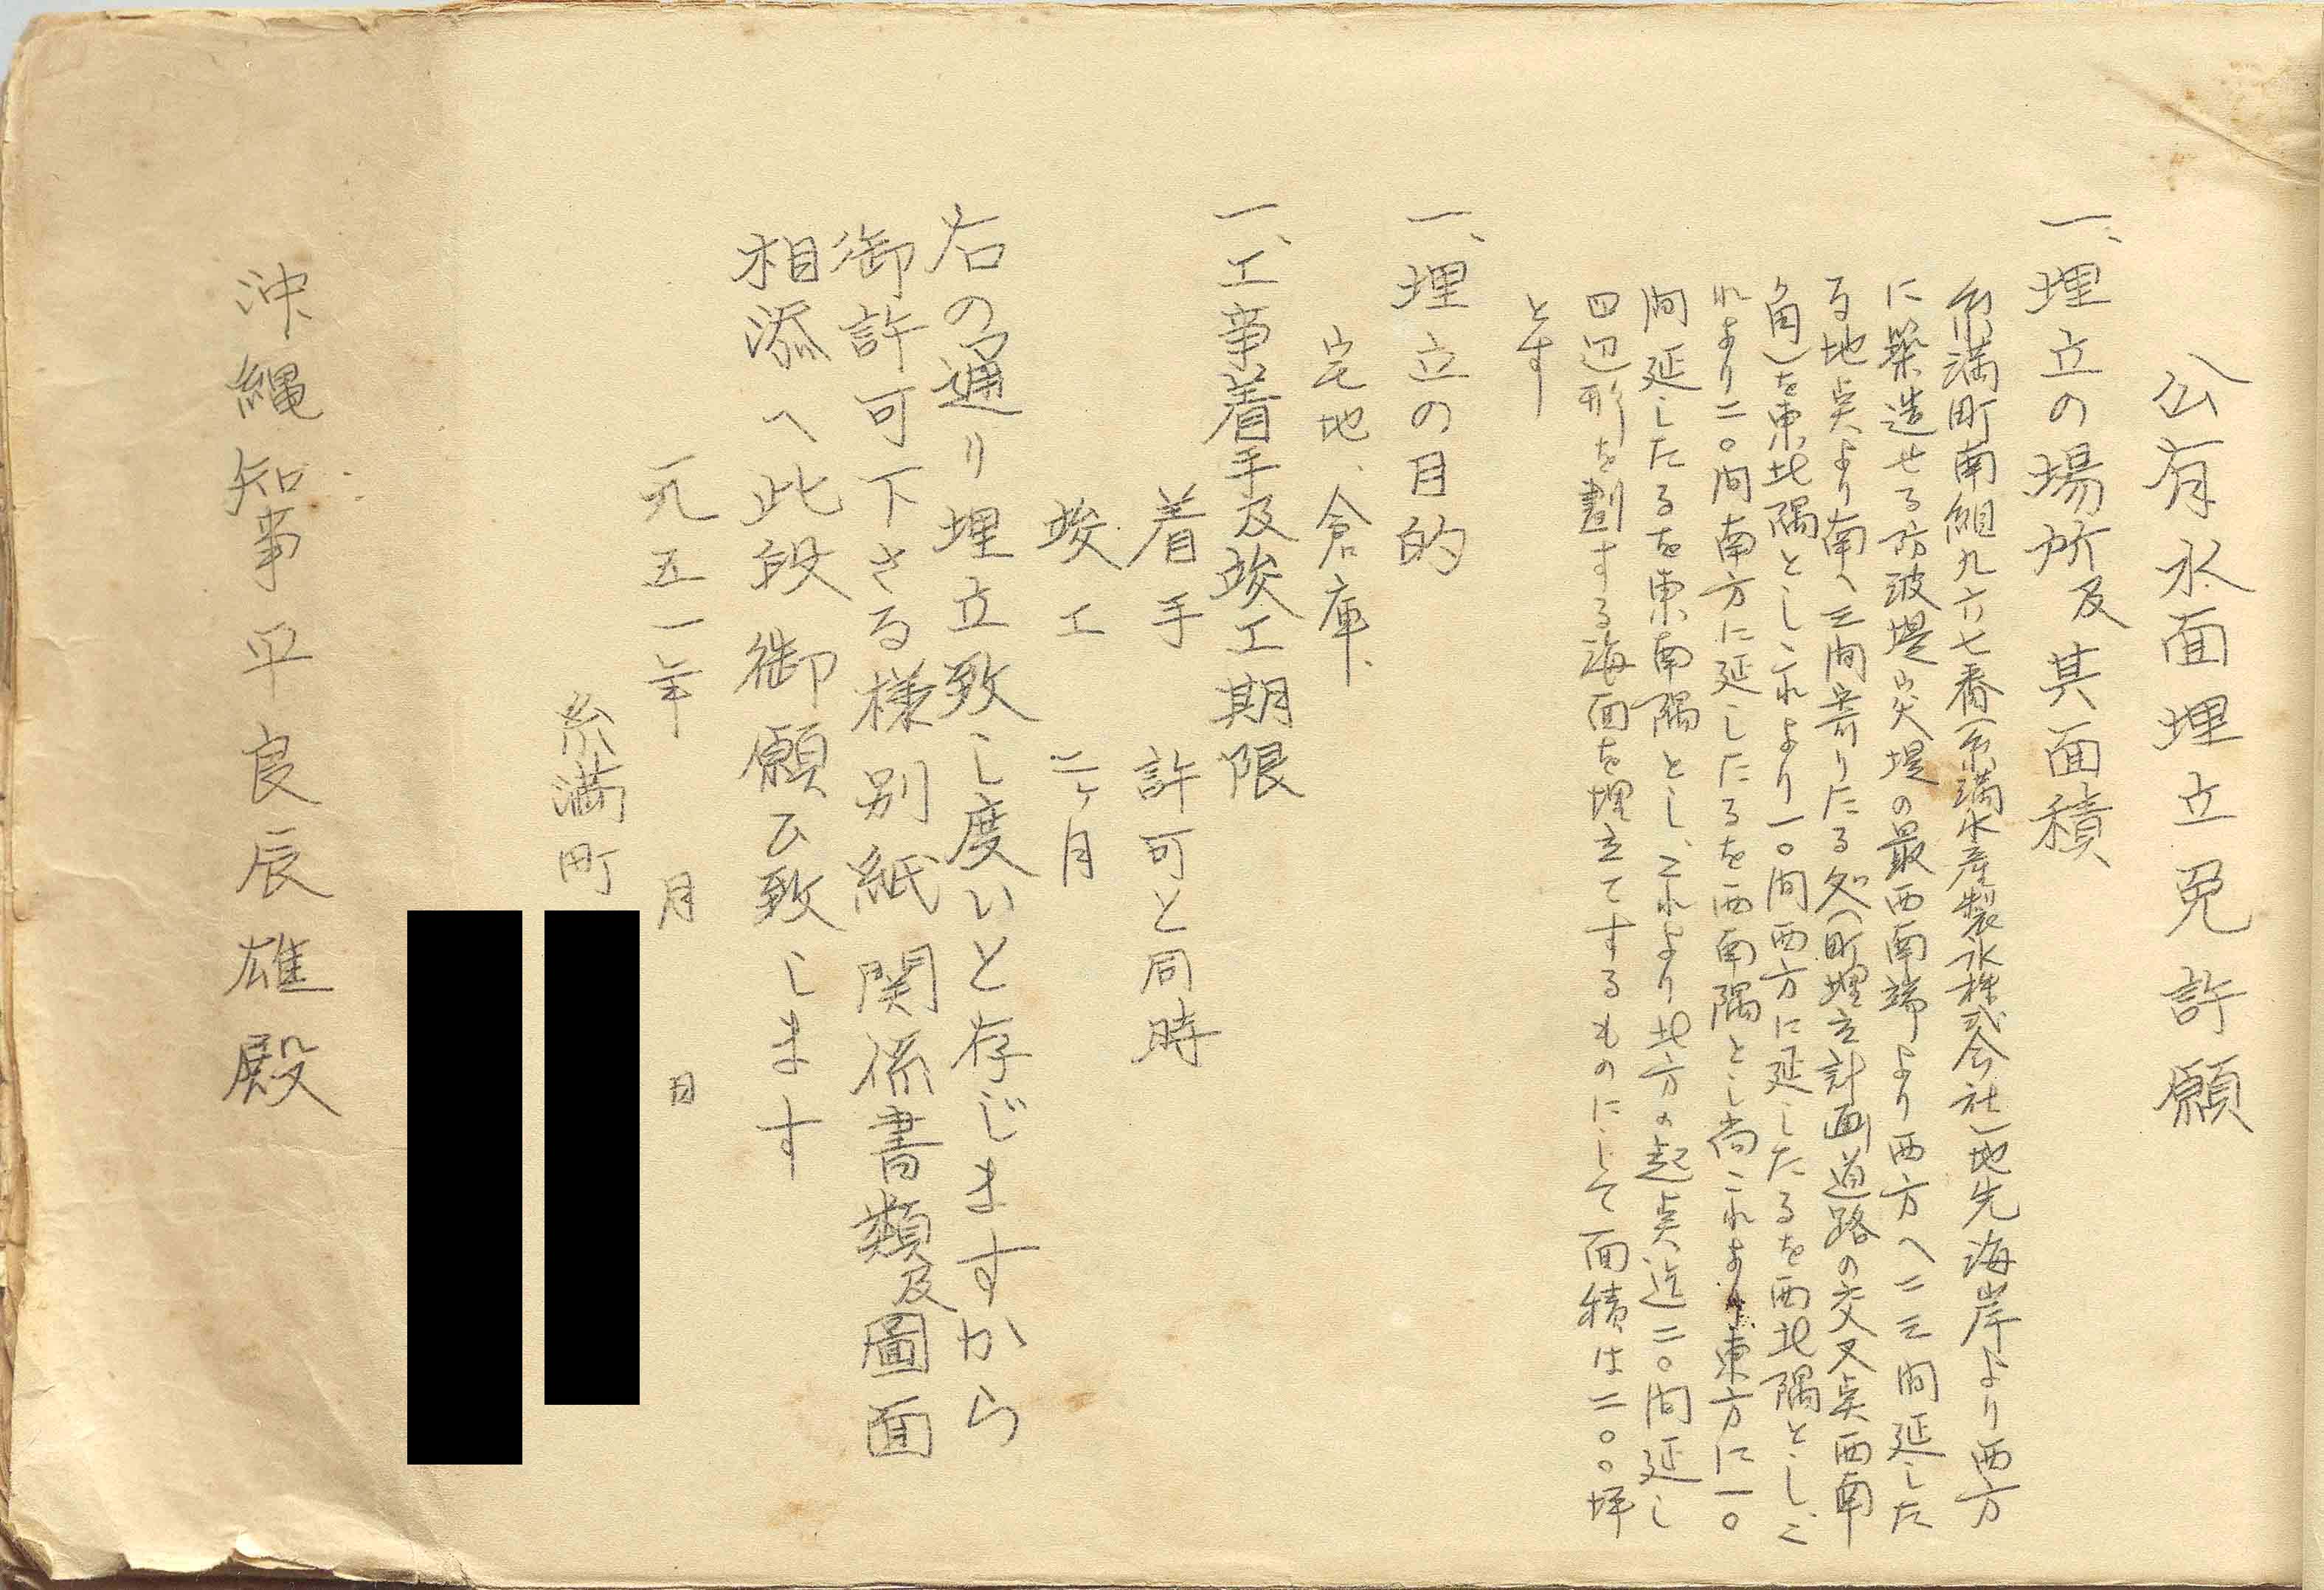 公有水面埋立免許願
一、埋立の場所及其面積
糸満町南組九六七番(糸満水産製氷株式会社)地先海岸より西方
に築造せる防波堤突堤の最西南端より西方へ二三間延した
る地点より南へ三間寄りたる処(町埋立計画道路の交叉点西南
角)を東北隅としこれより一〇間西方に延したるを西北隅とし、こ
れより二〇間南方に延したるを西南隅とし尚これより東方に一〇
間延したるを東南隅とし、これより北方の起点迄二〇間延し
四辺形を劃する海面を埋立てするものにして面積は二〇〇坪
とす
一、埋立の目的
宅地、倉庫、
一、工事着手及竣工期限
着手 許可と同時
竣工 二ヶ月
右の通り埋立致し度いと存じますから
御許可下さる様別紙関係書類及圖面
相添へ此段御願ひ致します
一九五一年 月 日
糸満町
沖縄知事平良辰雄殿